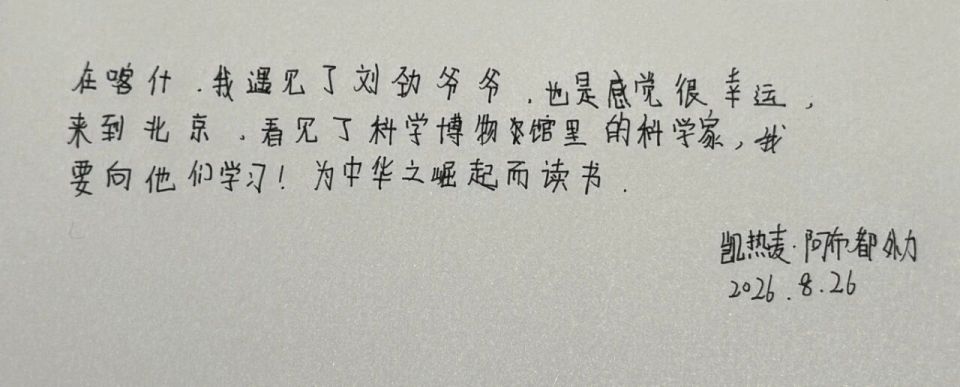 在喀什.我遇见了刘劲爷爷.也是感觉很幸运,
来到北京.看见了科学博物馆里的科学家,我
要向他们学习!为中华之崛起而读书.
凯热麦·阿布都外力
2026.8.26